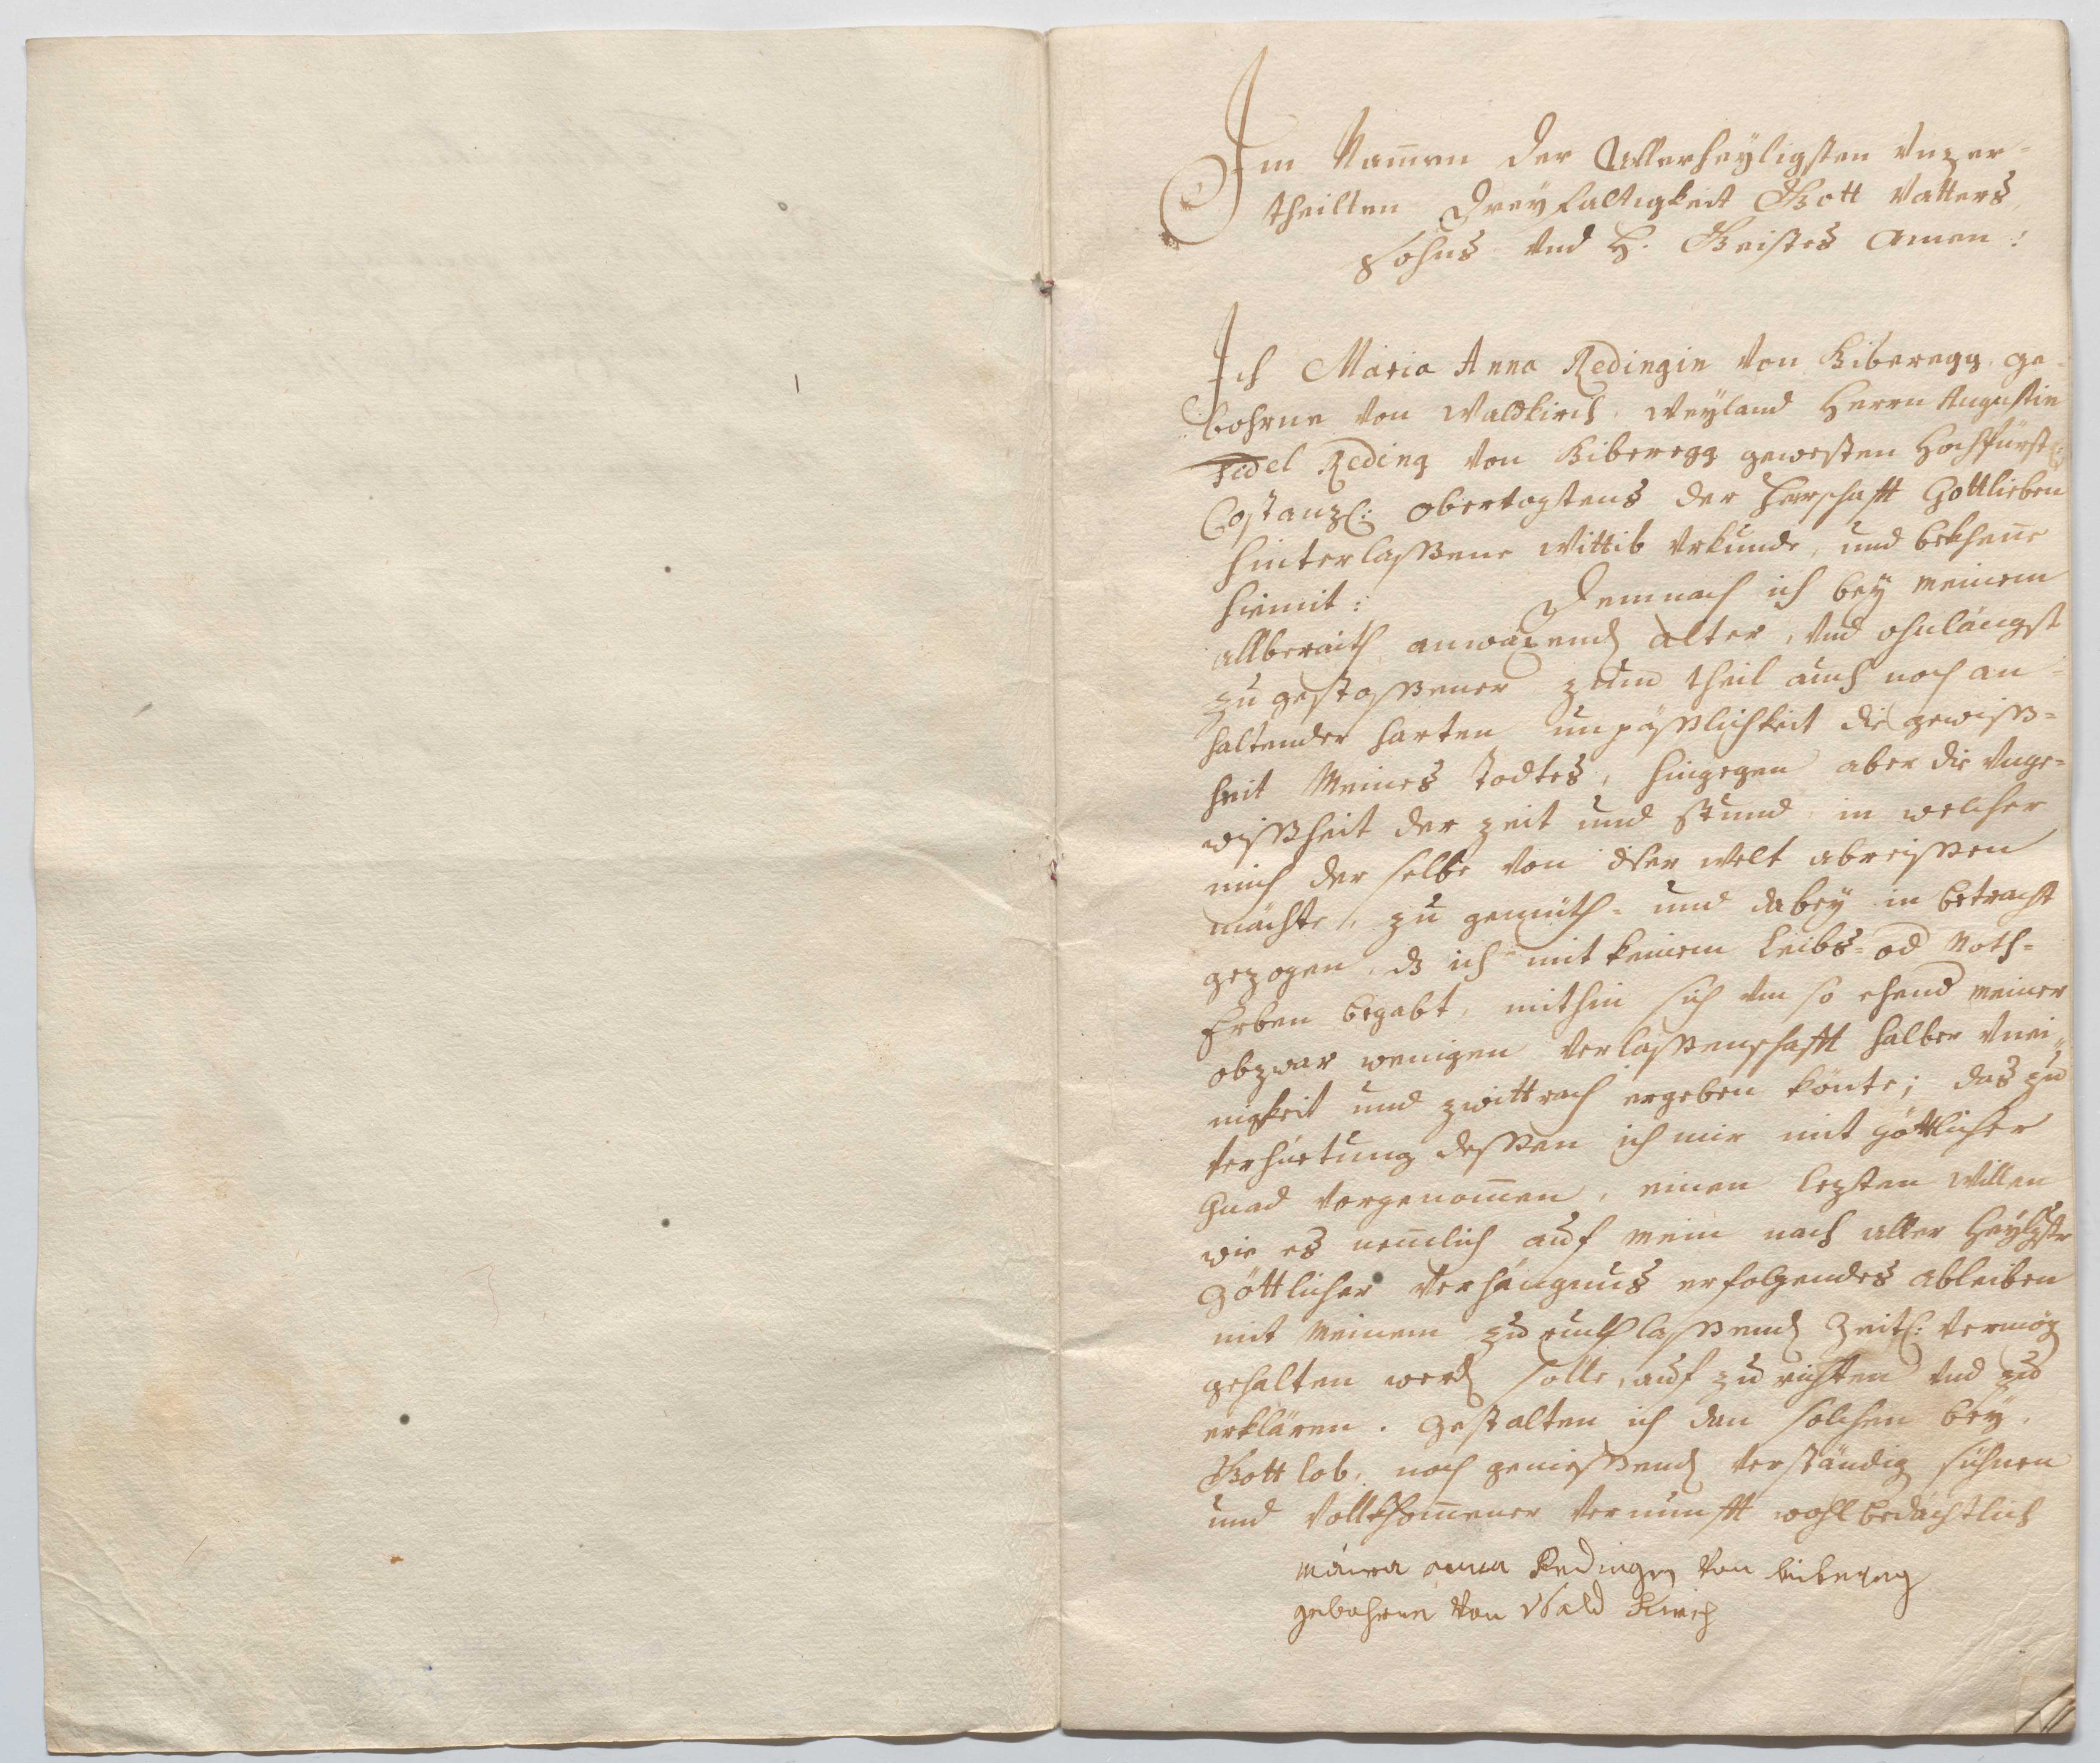 Im Nam̄en der Allerheyligsten Vnzer-
theilten Dreyfaltigkeit Gott Vatters
Sohns Vnd H. Geistes Amen:
Ich Maria Anna Redingin von Biberegg ge-
bohrne von Waldkirch, weyland Herrn Augustin
Fidel Reding von Biberegg gewesten Hochfürstl:
Costanzl: Obervogstens der Herschafft Gottlieben
hinterlaßene Wittib Vrkunde, und bekhen̄e
hiemit: Demnach ich bey meinem
allberaith anwaxend alter, Vnd ohnlängst
zu gestoßener zum theil auch noch an-
haltender harten unpäßlichkeit die gewiß-
heit Meines Todtes, hingegen aber die Vnge-
wißheit der zeit und stund, in welcher
mich der selbe von diser welt abreißen
möchte, zu gemüth- und dabey in betracht
gezogen, dz ich mit keinem Leibs- od Noth-
Erben begabt, mithin sich vm so ehend meiner
obzwar wenigen Verlaßenschafft halber Vnei-
nigkeit und zwittrach ergeben könte; das zu
Verhüetung deßen ich mir mit göttlicher
Gnad vorgenom̄en, einen lezsten willen
wie es nem̄lich auf mein nach aller heyligstr
Göttlicher Verhängnus erfolgendes ableiben
mit Meinem zuruckh laßend Zeitl: Vermög
gehalten werd solle, auf zu richten Vnd zu
erklären. Gestalten ich dan solchen bey,
Gott lob, noch genießend Verständig sühnen
und Vollkhom̄ener Vernunfft wohlbedächtlich
Maria anna Redingin von biberegg
gebohrne von Wald Kirch